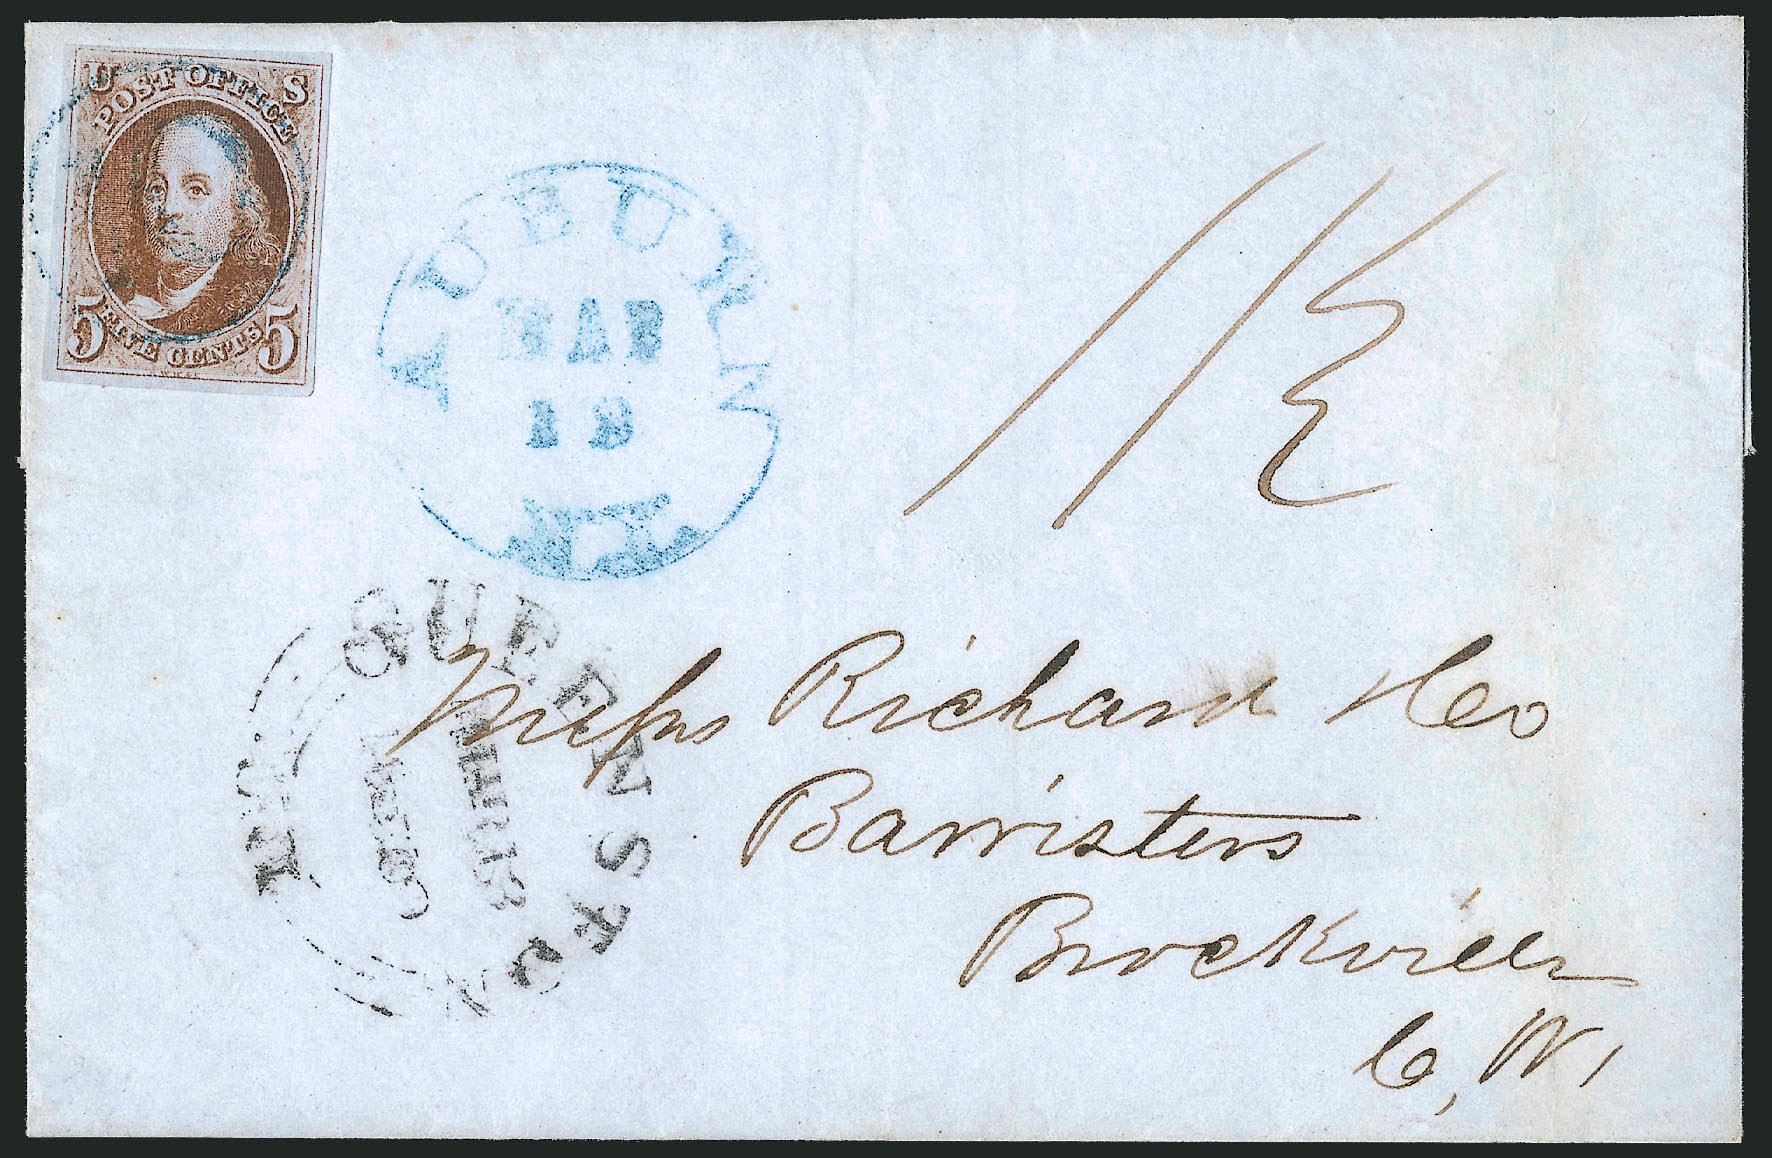 U S
POST OFFICE
5 FIVE CENTS 5
AUBURN
MAR
19
11½
QUEENSTON
Messrs Richard & Co
Barristers
Brockville
C, W,